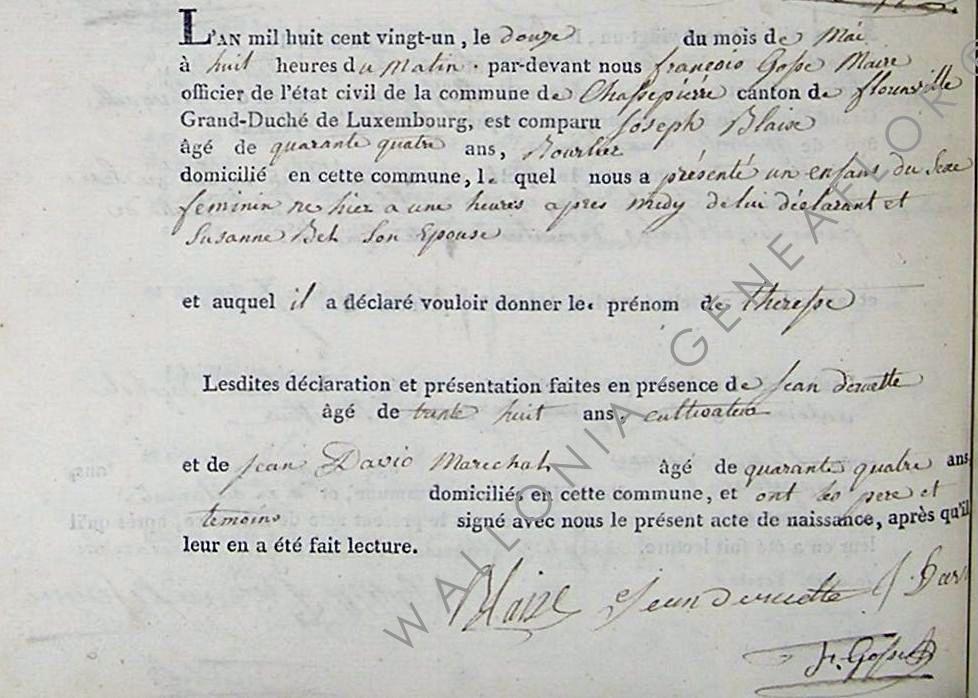 L'AN mil huit cent vingt-un, le douze du mois de Mai
à huit heures du Matin. par-devant nous françois Gosse Maire
officier de l'état civil de la commune de Chassepierre canton de florenville
Grand-Duché de Luxembourg, est comparu Joseph Blaise
âgé de quarante quatre ans,
domicilié en cette commune, le quel nous a présenté un enfant du Sexe
feminin ne hier a une heures apres midy de lui déclarant et
Susanne Son Epouse
et auquel il a déclaré vouloir donner le prénom de theresse
Lesdites déclaration et présentation faites en présence de Jean
âgé de trente huit ans, cultivateur
et de Jean David Marechal âgé de quarante quatre ans
domiciliés en cette commune, et ont les pere et
temoins signé avec nous le présent acte de naissance, après qu'il
leur en a été fait lecture.
Blaise Jean J Dav
fr. Gosse
WALLONIA GENEAFLOR ©